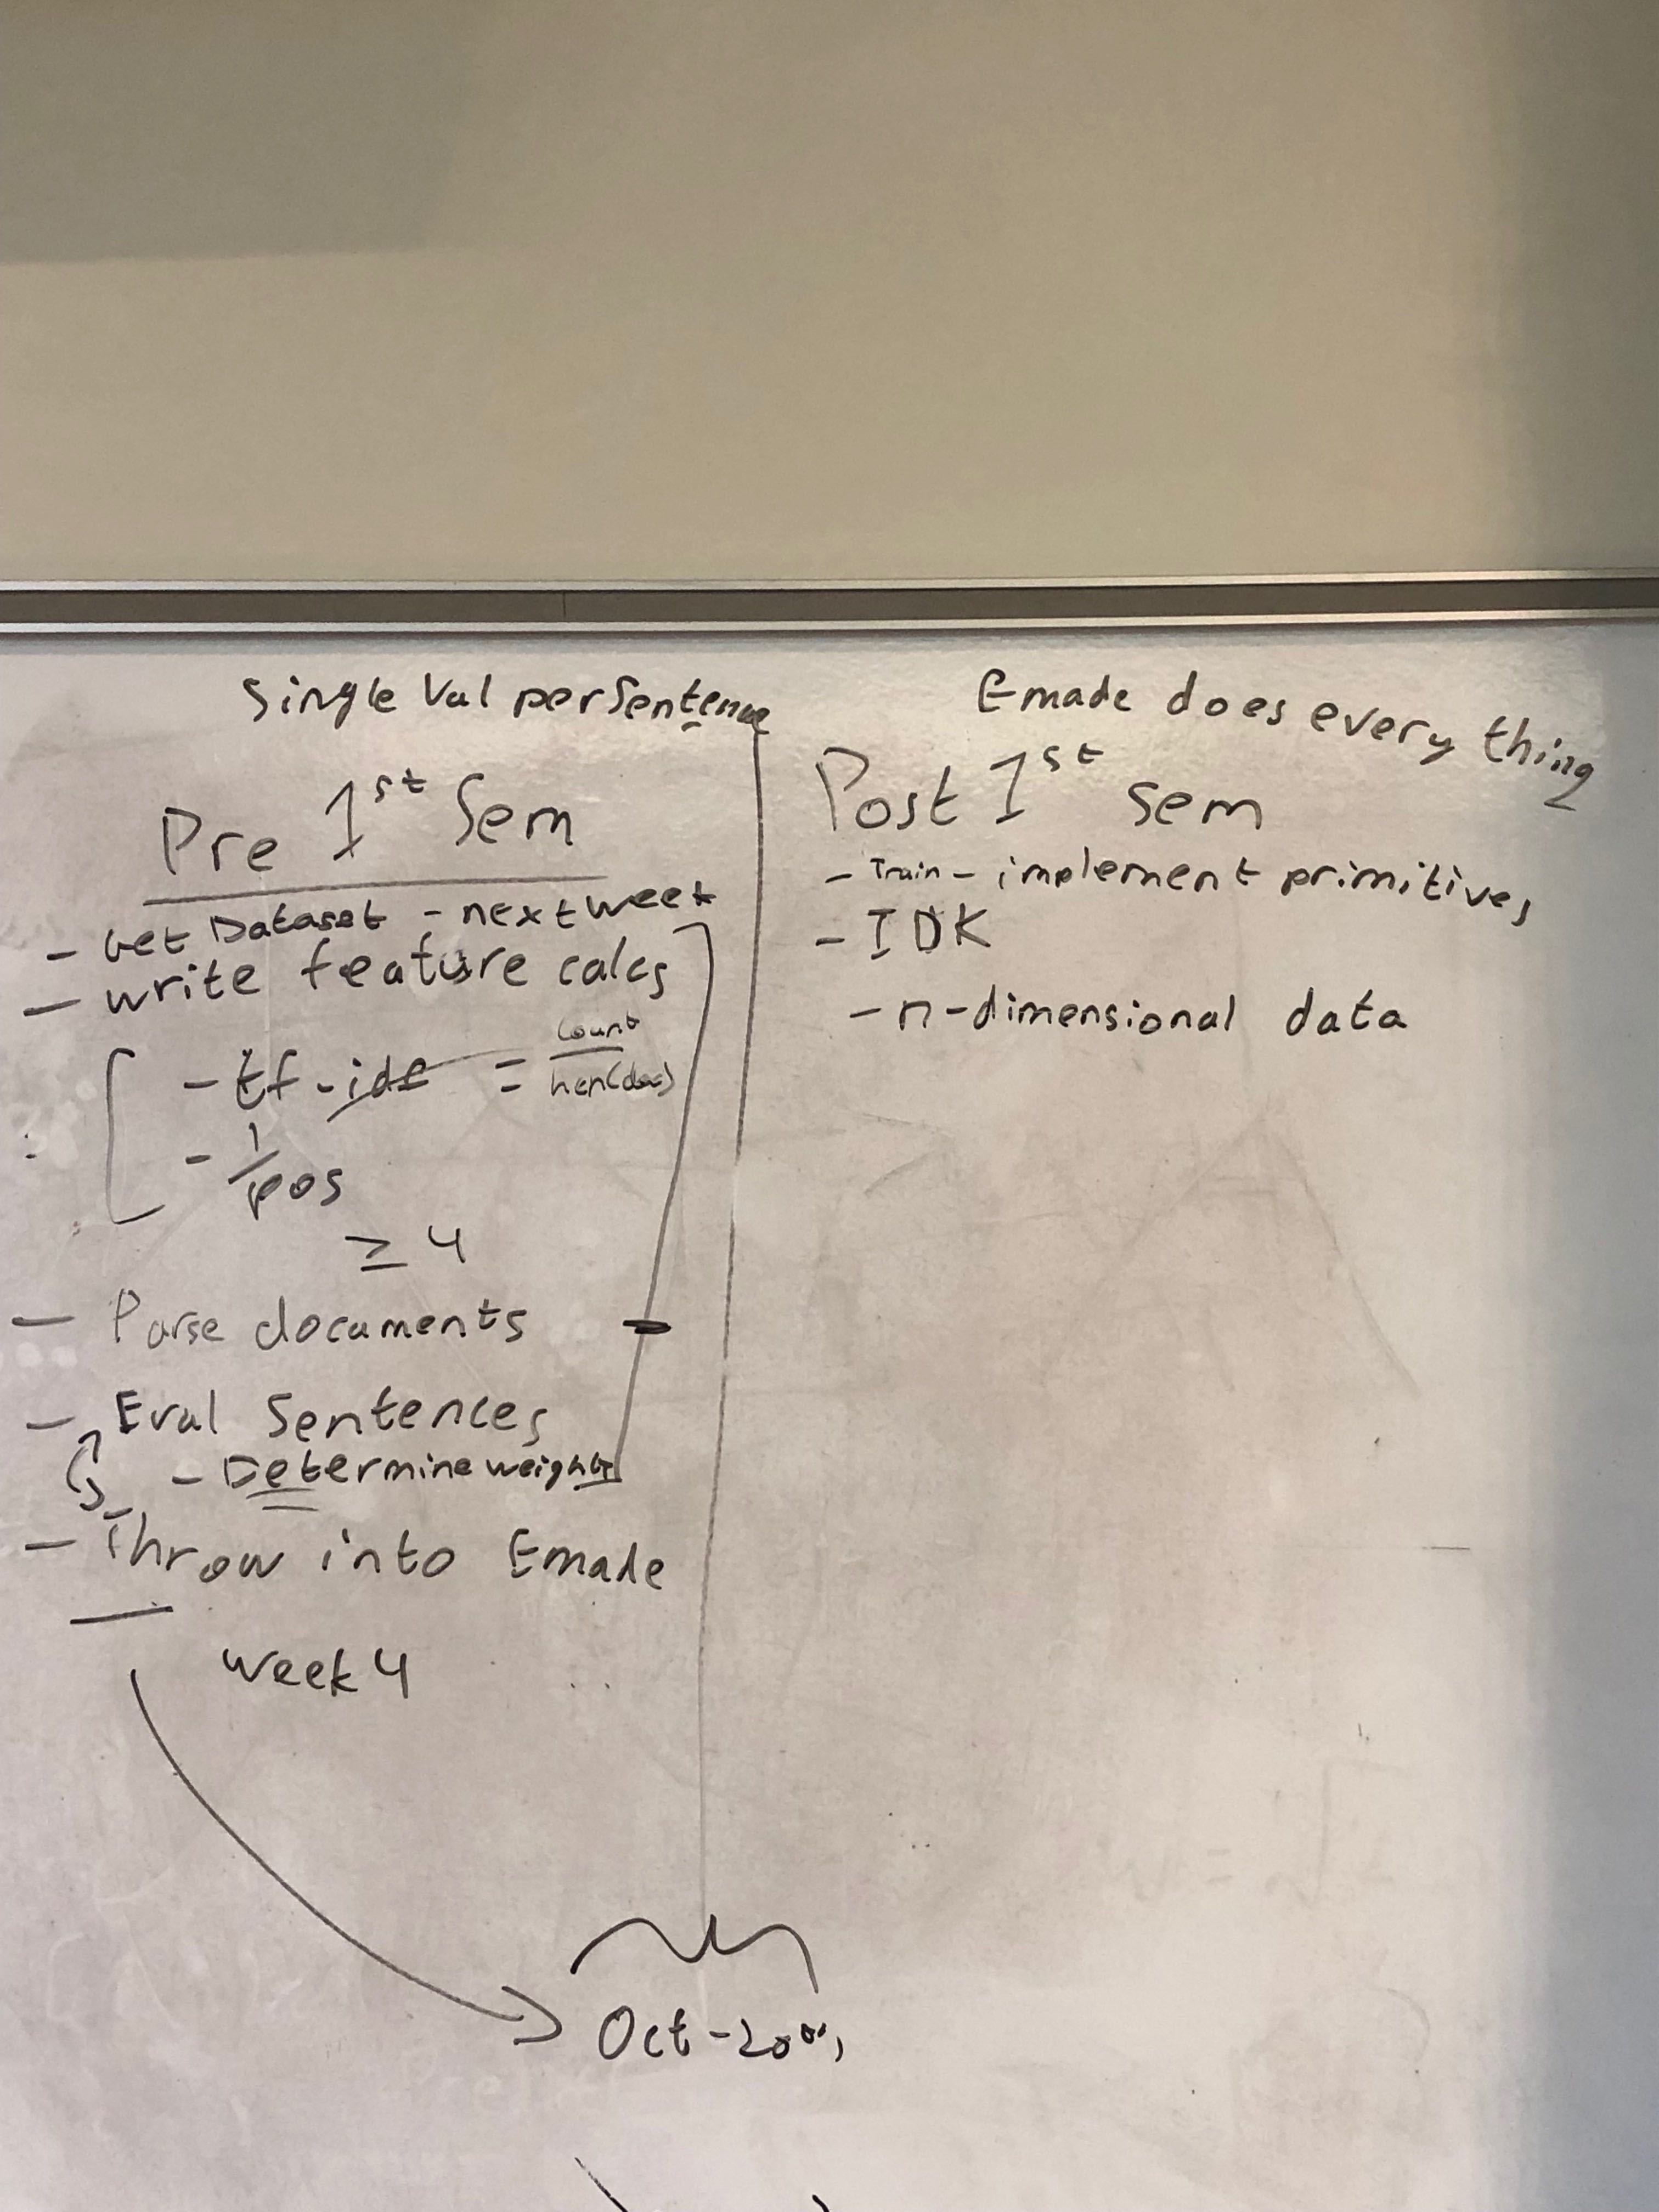 Single Val per Sentence
Pre 1st Sem
- Get Dataset - next week
- write feature calcs
- tf-idf = count / len(doc)
- 1/pos
≥ 4
- Parse documents
- Eval Sentences
- Determine weights
- Throw into Emade
week 4
Oct -
Emade does every thing
Post 1st sem
- Train - implement primitives
- IDK
- n-dimensional data